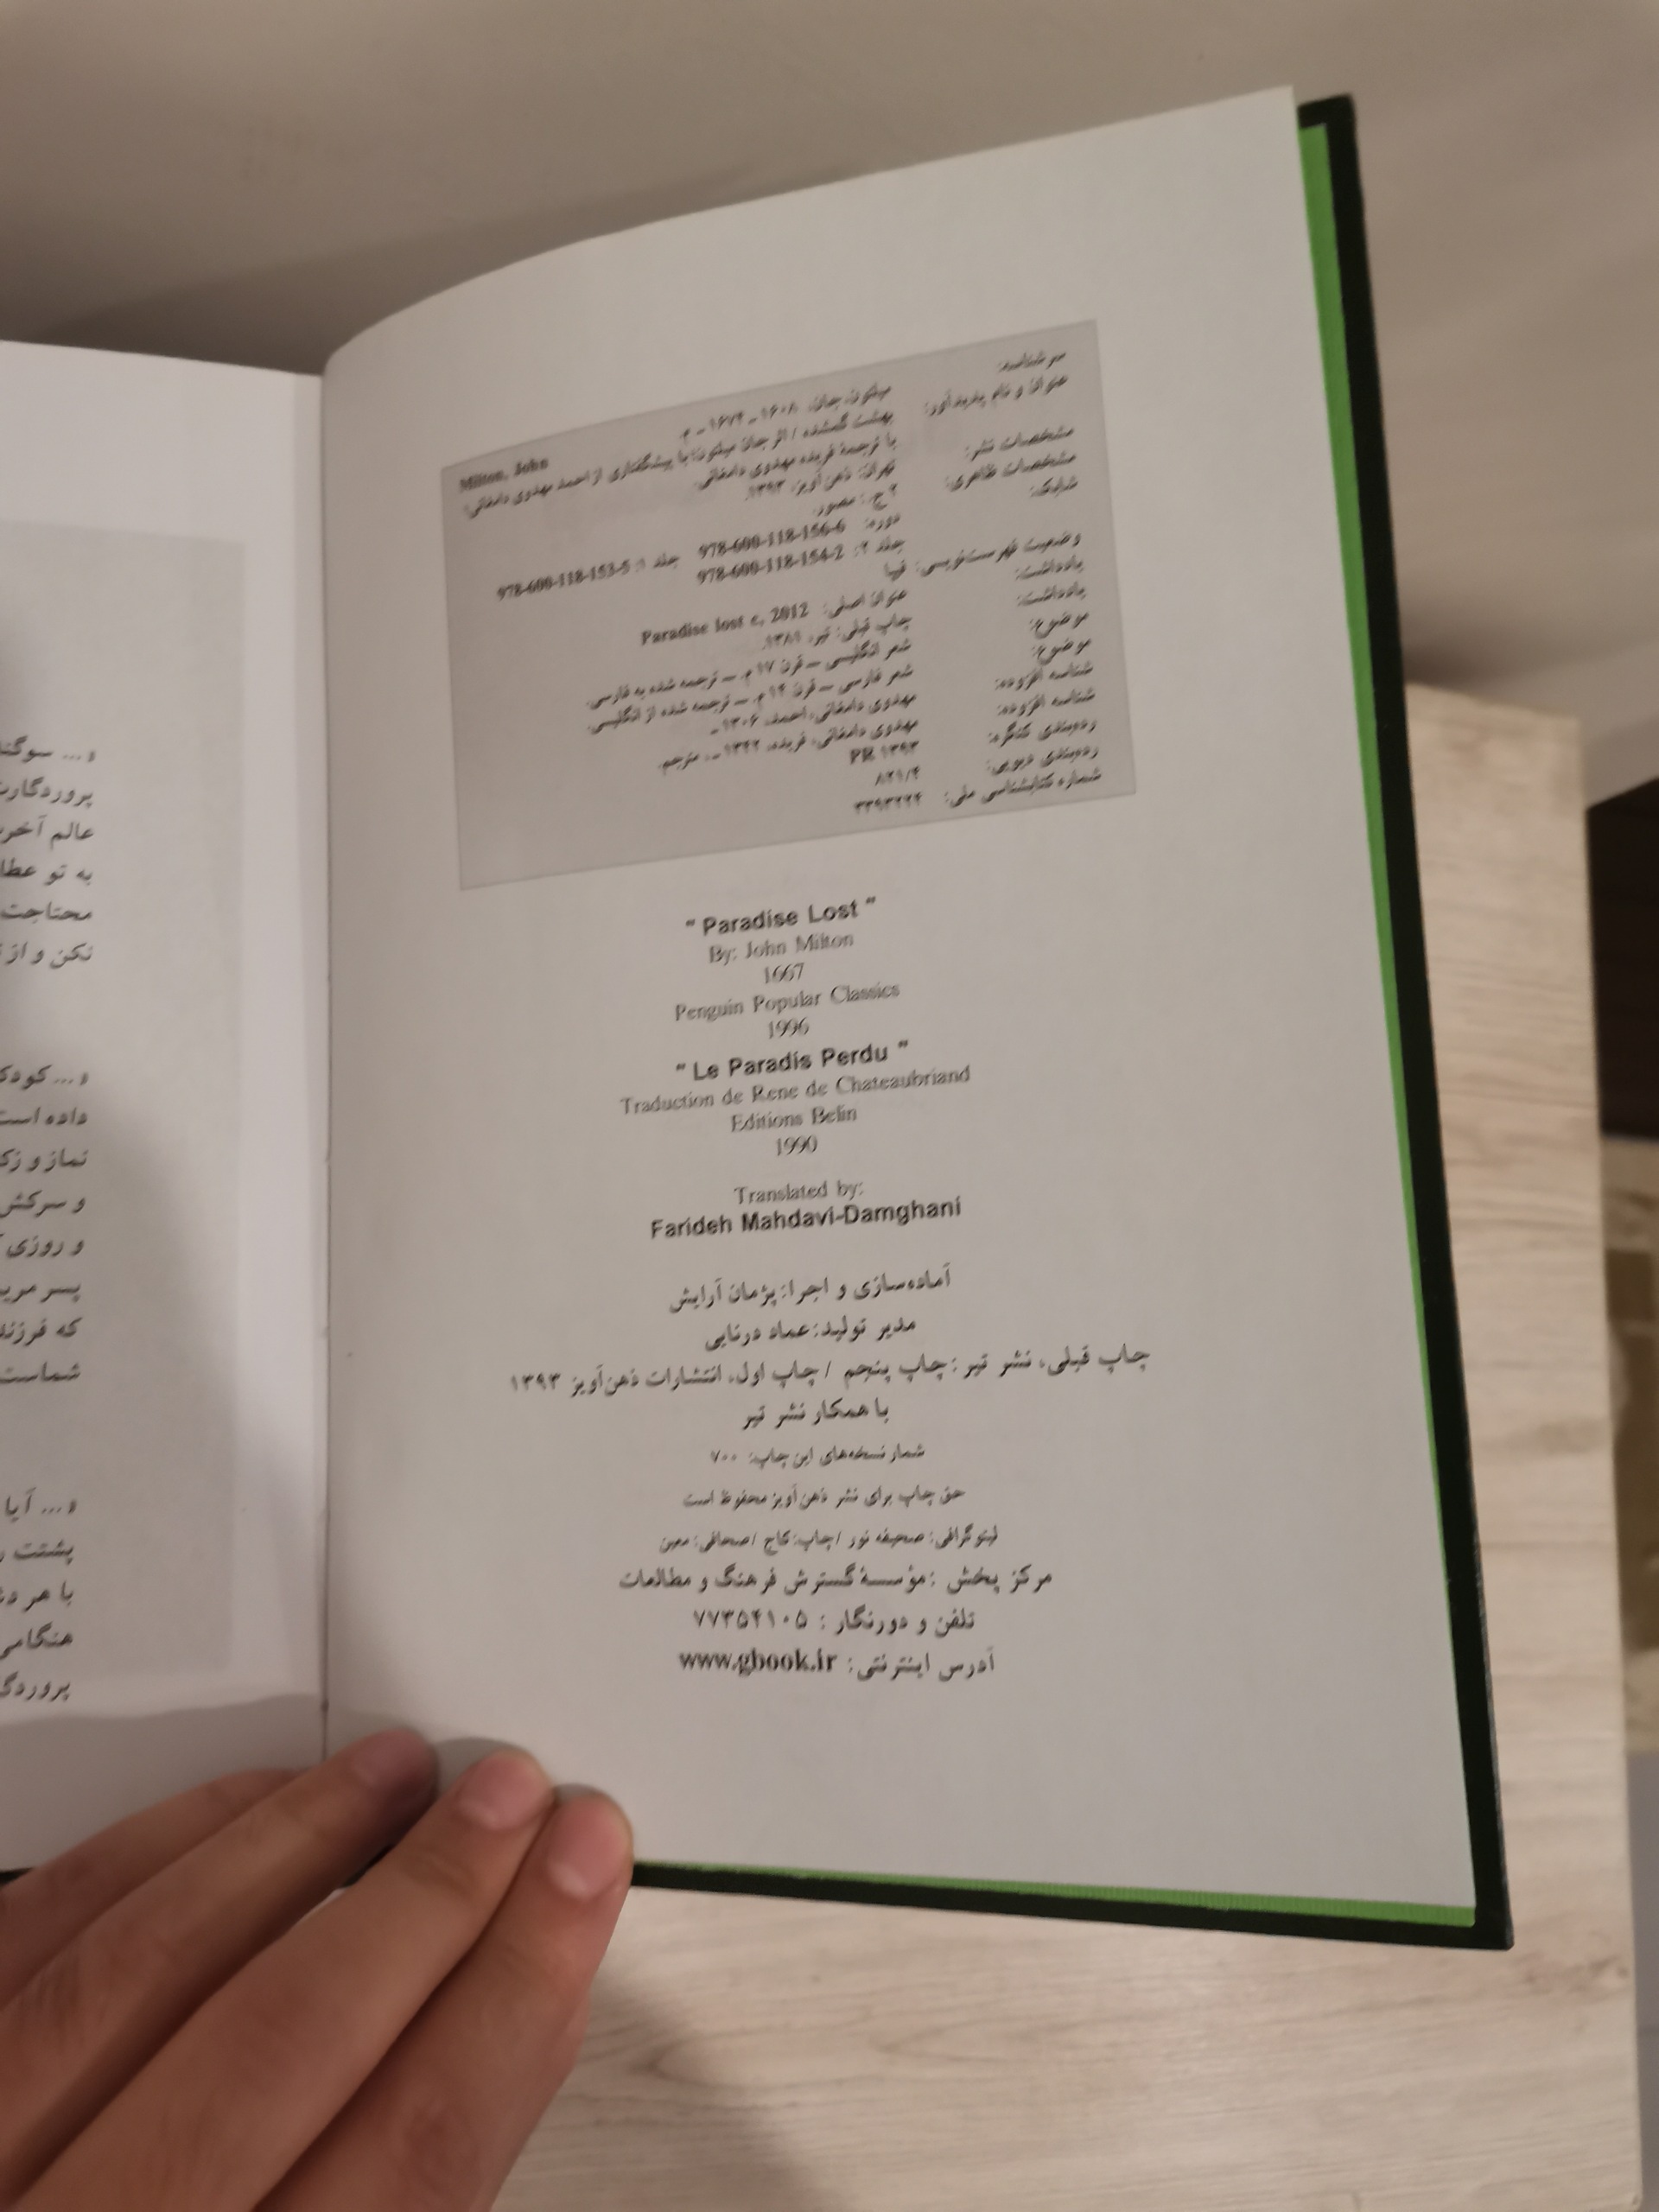 سرشناسه: میلتون، جان، ۱۶۰۸ ـ ۱۶۷۴ ـ م. Milton, John
عنوان و نام پدیدآور: بهشت گمشده / اثر جان میلتون؛ با پیشگفتاری از احمد مهدوی دامغانی؛
با ترجمهٔ فریده مهدوی دامغانی.
مشخصات نشر: تهران: ذهن‌آویز، ۱۳۹۳.
مشخصات ظاهری: ج.: مصور.
شابک: دوره: 978-600-118-156-6 جلد ۱: 978-600-118-153-5
جلد ۲: 978-600-118-154-2
وضعیت فهرست‌نویسی: فیپا
یادداشت: عنوان اصلی: Paradise lost c, 2012
یادداشت: چاپ قبلی: تیر، ۱۳۸۱.
موضوع: شعر انگلیسی ـ قرن ۱۷ م. ـ ترجمه شده به فارسی.
موضوع: شعر فارسی ـ قرن ۱۴ م. ـ ترجمه شده از انگلیسی.
شناسه افزوده: مهدوی دامغانی، احمد، ۱۳۰۶ ـ
شناسه افزوده: مهدوی دامغانی، فریده، ۱۳۴۲ ـ ، مترجم.
رده‌بندی کنگره: PR ۱۳۹۳
رده‌بندی دیویی: ۸۲۱/۴
شماره کتابشناسی ملی: ۳۳۹۳۲۲۴
" Paradise Lost "
By: John Milton
1667
Penguin Popular Classics
1996
" Le Paradis Perdu "
Traduction de Rene de Chateaubriand
Editions Belin
1990
Translated by:
Farideh Mahdavi-Damghani
آماده‌سازی و اجرا: پژمان آرایش
مدیر تولید: عماد درنایی
چاپ قبلی، نشر تیر: چاپ پنجم / چاپ اول، انتشارات ذهن‌آویز ۱۳۹۳
با همکار نشر تیر
شمار نسخه‌های این چاپ: ۷۰۰
حق چاپ برای نشر ذهن‌آویز محفوظ است
لیتوگرافی: صحیفه نور / چاپ: کاج / صحافی: معین
مرکز پخش : مؤسسهٔ گسترش فرهنگ و مطالعات
تلفن و دورنگار : ۷۷۳۵۴۱۰۵
آدرس اینترنتی: www.gbook.ir
«... سوگند
پروردگارت
عالم آخر
به تو عطا
محتاجت
نکن و از
«... کودک
داده است
نماز و زک
و سرکش
و روزی
پسر مریم
که فرزند
شماست
«... آیا
پشتت
با هر دش
هنگامی
پروردگ